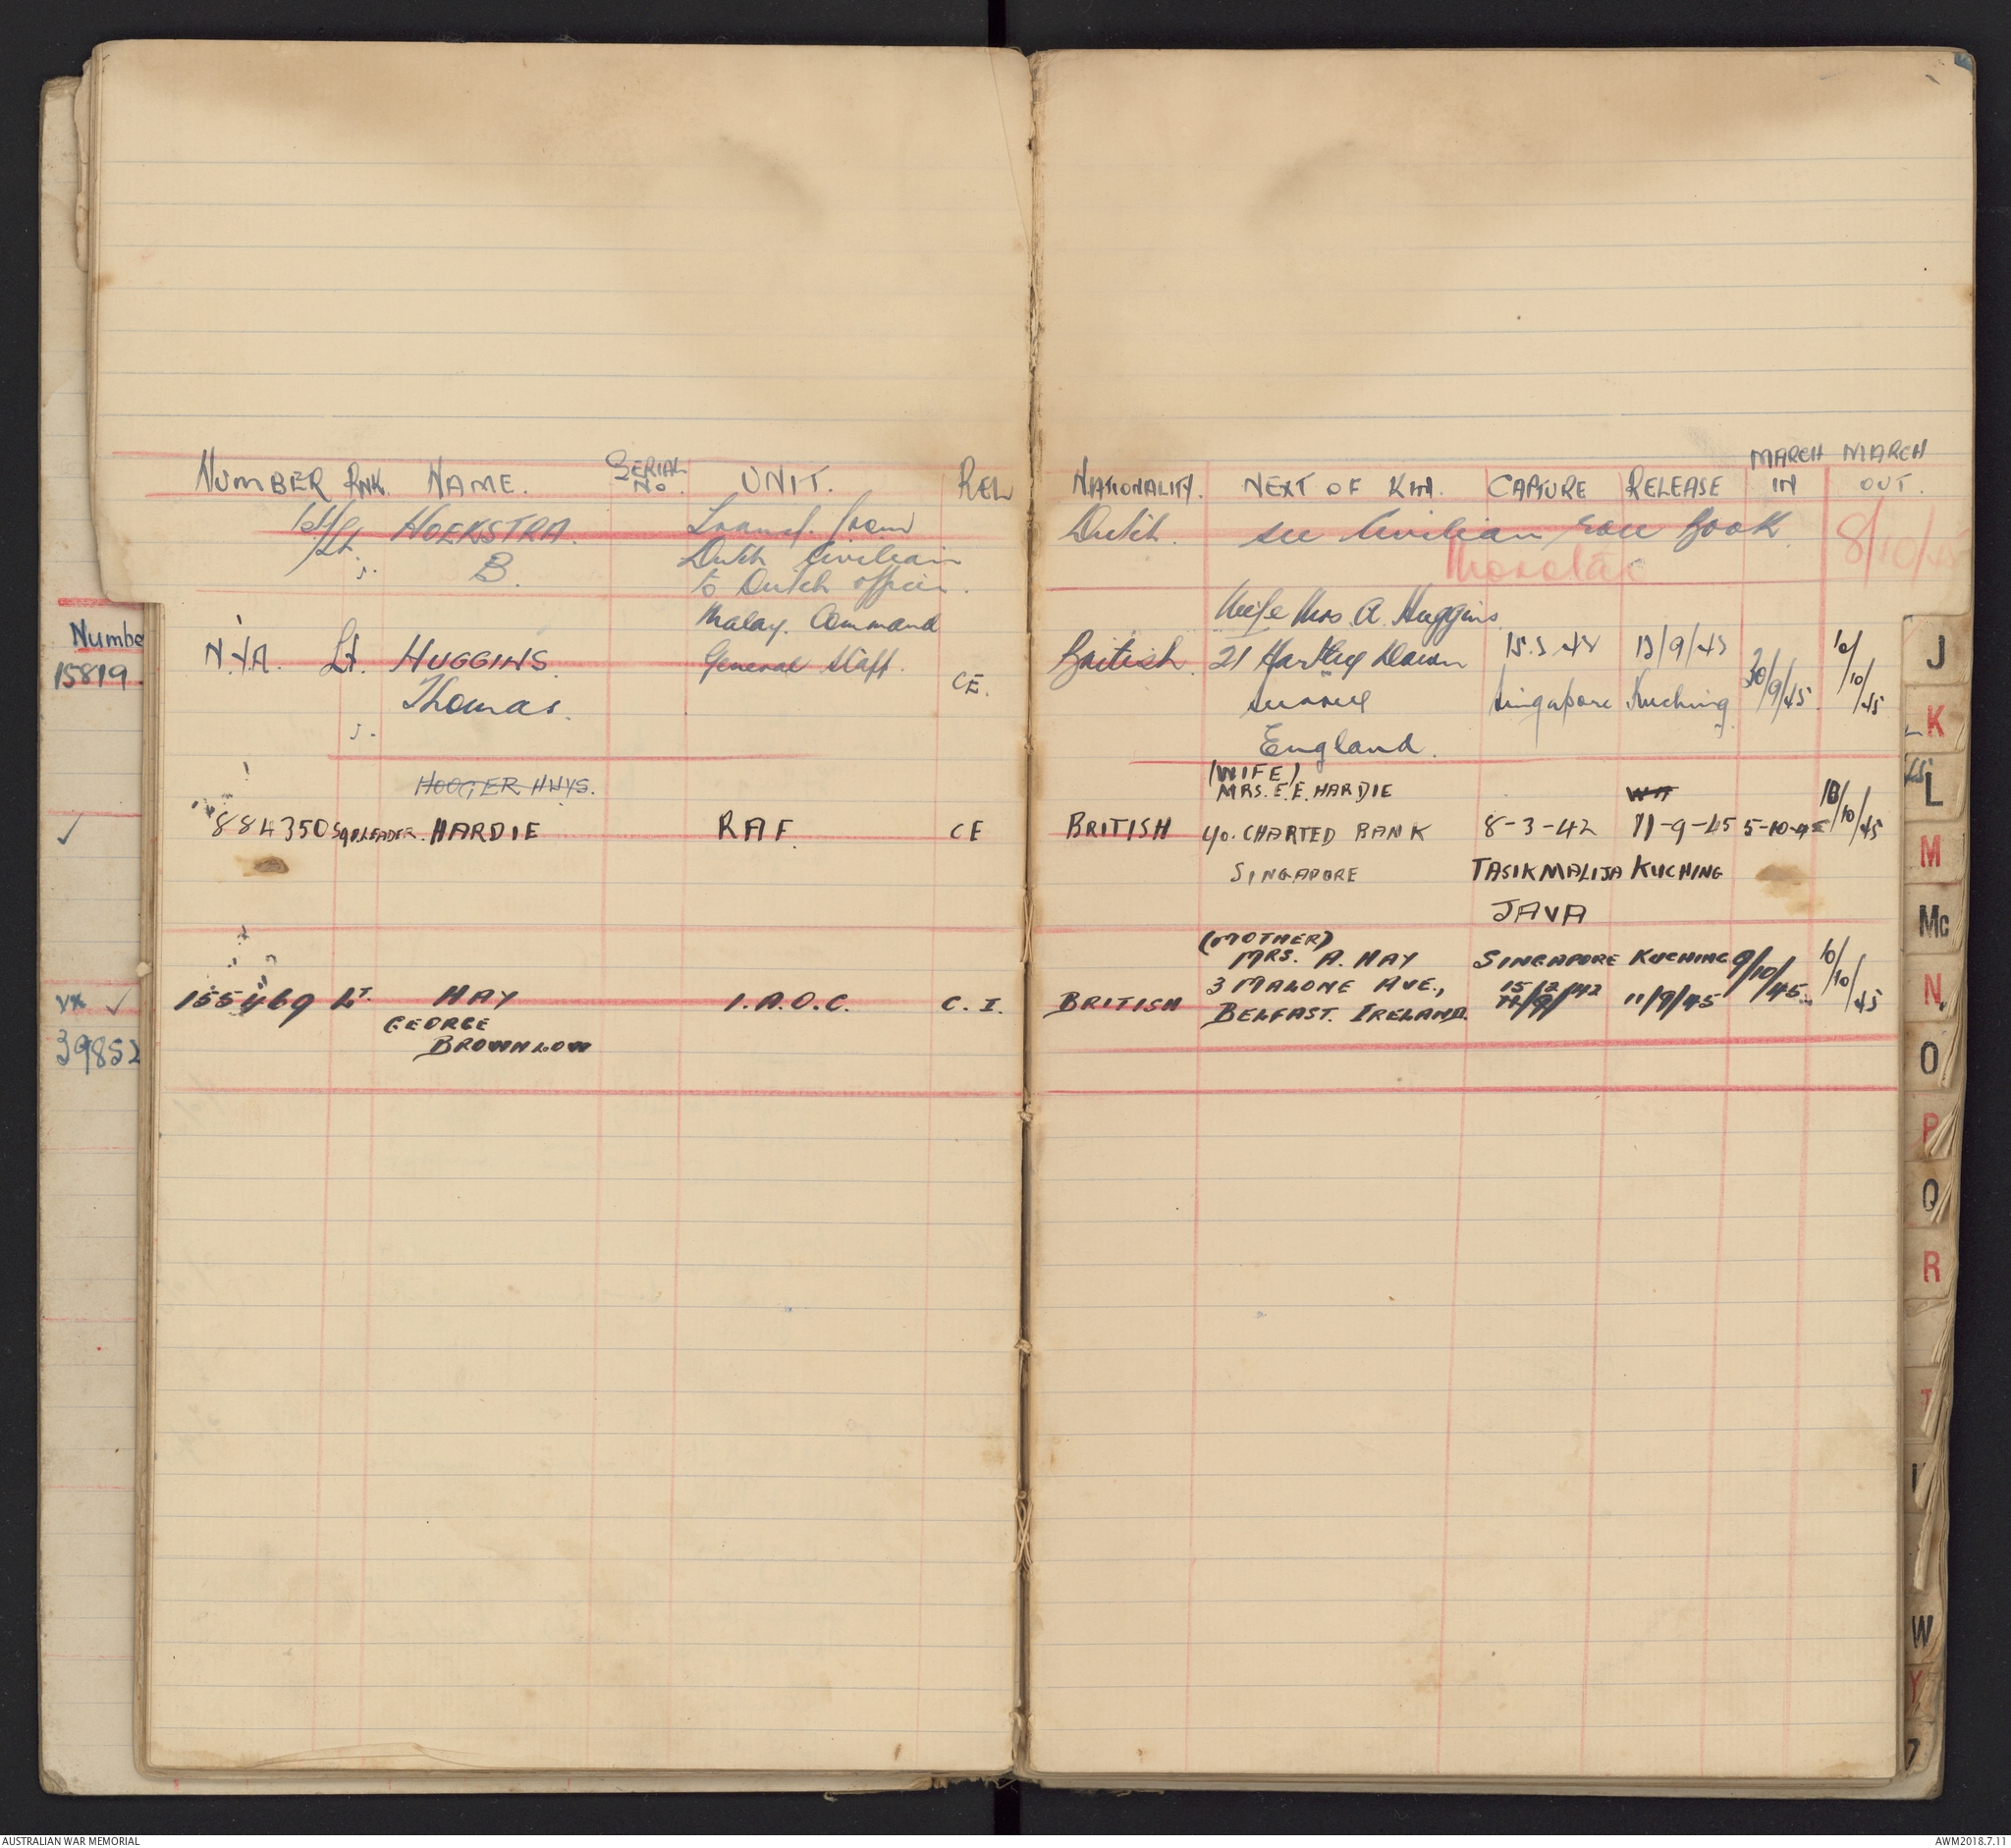 NUMBER RNK. NAME. SERIAL No. UNIT. REL
NATIONALITY. NEXT OF KIN. CAPTURE RELEASE MARCH IN MARCH OUT.
1st/Lt. HOEKSTRA. Transf. from
B. Dutch Civilian
to Dutch officer.
Dutch. see Civilian Book
8/10/45
Malay. Command
N.Y.A. Lt. HUGGINS. General Staff. CE.
Thomas.
Wife Mrs. A. Huggins
British. 21 Hartley Down 13/9/45
Singapore Kuching 30/9/45 10/10/45
England.
HOOGER HUYS.
884350 SQD.LEADER. HARDIE RAF. CE
(WIFE)
MRS. E. E. HARDIE
BRITISH C/O. CHARTED BANK 8-3-42 11-9-45 5-10-45 10/10/45
SINGAPORE TASIKMALIJA KUCHING
JAVA
155469 LT. HAY I.A.O.C. C.I.
GEORGE
BROWNLOW
(MOTHER)
MRS. A. HAY SINGAPORE KUCHING 9/10/45 10/10/45
3 MALONE AVE., 15/2/42
BRITISH BELFAST. IRELAND. 11/9/45
Numbe
15819
VX
39852
J
K
L
M
Mc
N
O
P
Q
R
T
W
Y
AUSTRALIAN WAR MEMORIAL
AWM2018.7.11